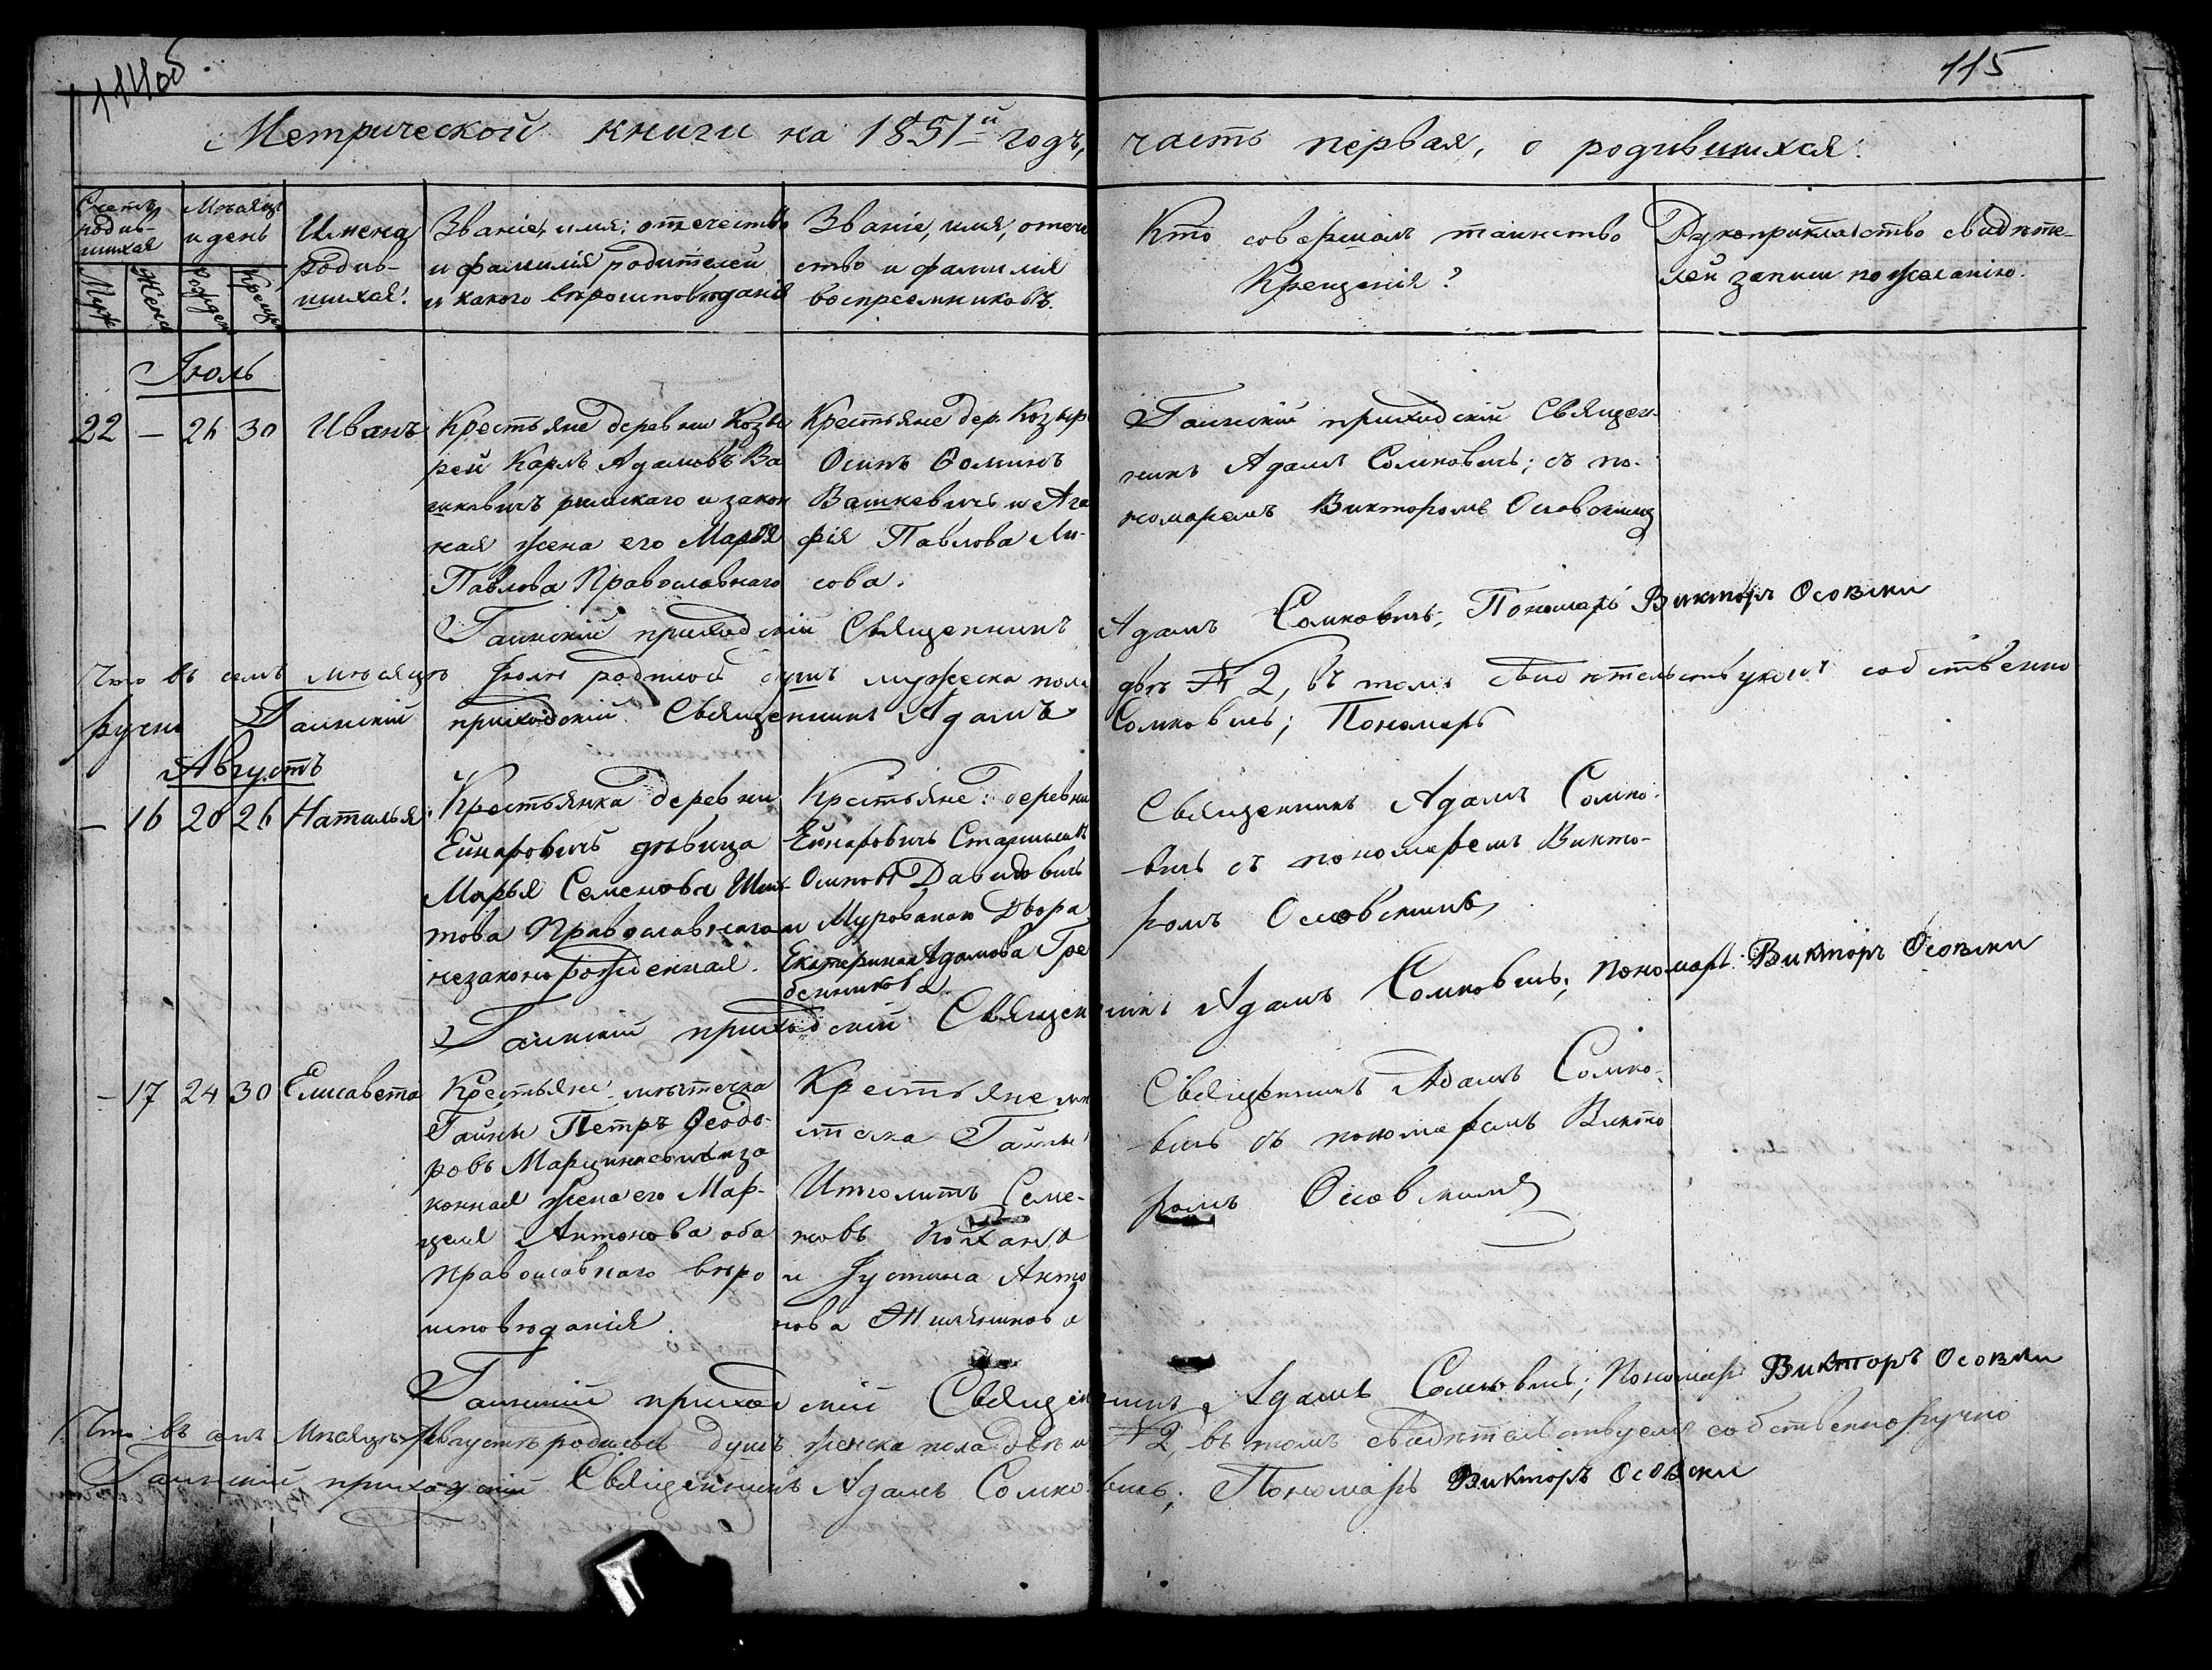 114об
115
Метрической книги на 1851й годъ, часть первая, о родившихся.
Счетъ родив-шихся
Муж
Жена
Мѣсяцъ и день
Рожден
Крещ
Имена
родив-
шихся.
Званіе, имя, отечество
и фамилія родителей
и какого вѣроисповѣданія
Званіе, имя, отече
ство и фамилія
воспреемниковъ.
Кто совершалъ таинство
Крещенія?
Рукоприкладство свидѣте-
лей записи по желанію.
Іюль
22 — 26 30 Иванъ
Крестьяне деревни Козы
рей Карлъ Адамовъ Ва
шкевичъ римскаго и закон
ная жена его Марья
Павлова Православнаго
Крестьяне дер. Козыр
Осипъ Ѳоминъ
Вашкевичъ и Ага
фія Павлова Ли-
сова.
Гаинскій приходскій Священ-
никъ Адамъ Сомковичъ; съ по-
номаремъ Викторомъ Осовскимъ
Гаинскій приходскій Священникъ Адамъ Сомковичъ; Пономарь Викторъ Осовски
Что въ семъ мѣсяцѣ Іюлѣ родилось душъ мужеска пола двѣ № 2, въ томъ свидѣтельствуемъ собственно
ручно Гаинскій приходскій Священникъ Адамъ Сомковичъ; Пономарь
Августъ
— 16 20 26 Наталья
Крестьянка деревни
Ейнаровичъ дѣвица
Марья Семенова
това Православнаго
незаконорожденная.
Крестьяне: деревни
Ейнаровичъ
Осиповъ Давидовичъ
и Мурованаго Двора
Екатерина Адамова Гре
бенникова
Священникъ Адамъ Сомко-
вичъ съ пономаремъ Викто-
ромъ Осовскимъ
Гаинскій приходскій Священникъ Адамъ Сомковичъ; Пономарь Викторъ Осовски
— 17 24 30 Елисавета
Крестьяне мѣстечка
Гайны Петръ Ѳеодо-
ровъ Марцинкевичъ и за
конная жена его Мар-
целя Антонова оба
православнаго вѣро
исповѣданія.
Крестьяне мѣ
стечка Гайны
Ипполитъ Семе-
новъ Коханъ
и Іустина Анто
нова
Священникъ Адамъ Сомко-
вичъ съ пономаремъ Викто
ромъ Осовскимъ
Гаинскій приходскій Священникъ Адамъ Сомковичъ; Пономарь Викторъ Осовски
Что въ семъ Мѣсяцѣ Августѣ родилось душъ женска пола двѣ № 2, въ томъ свидѣтельствуемъ собственноручно
Гаинскій приходскій Священникъ Адамъ Сомковичъ; Пономарь Викторъ Осовски